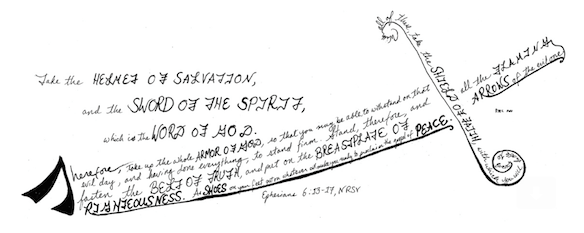 Therefore, take up the whole ARMOR OF GOD, so that you may be able to withstand on that
evil day, and having done everything, to stand firm. Stand, therefore, and
fasten the BELT OF TRUTH, and put on the BREASTPLATE OF
RIGHTEOUSNESS. As SHOES on your feet put on whatever will make you ready to proclaim the gospel of PEACE.
all of these, take the SHIELD OF
with which you will
all the FLAMING
ARROWS of the evil one.
Take the HELMET OF SALVATION,
and the SWORD OF THE SPIRIT,
which is the WORD OF GOD.
Ephesians 6:13-17, NRSV